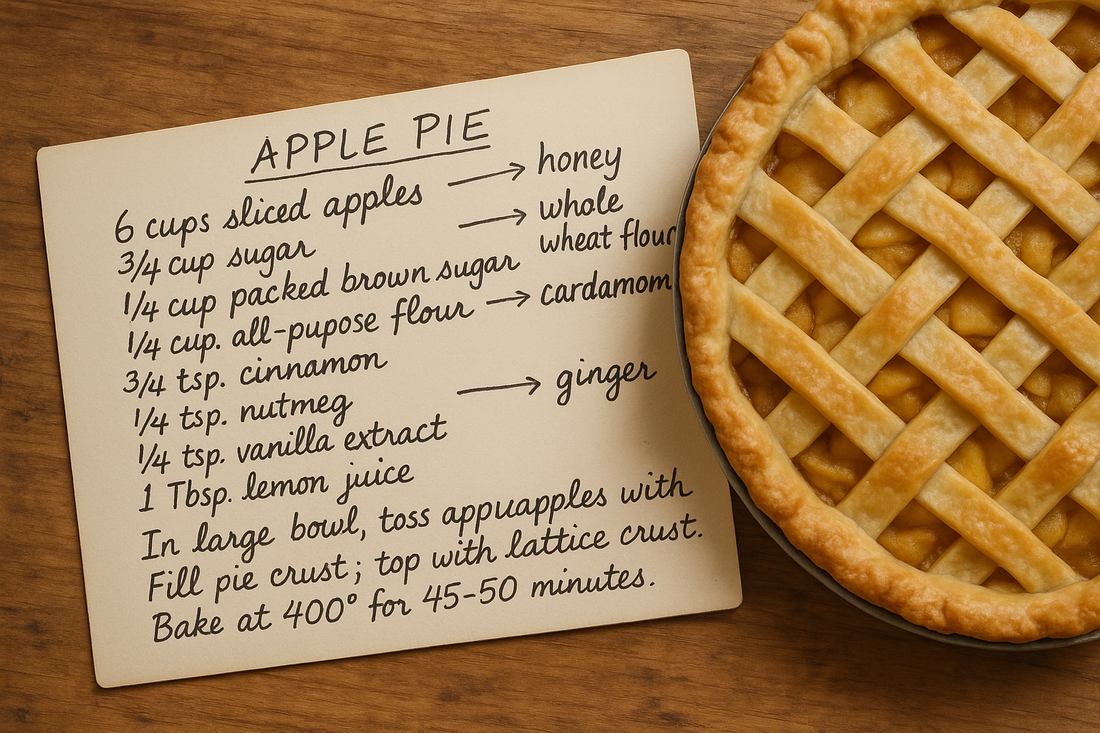 APPLE PIE
6 cups sliced apples → honey
3/4 cup sugar → whole wheat flour
1/4 cup packed brown sugar
1/4 cup. all-pupose flour → cardamom
3/4 tsp. cinnamon
1/4 tsp. nutmeg → ginger
1/4 tsp. vanilla extract
1 Tbsp. lemon juice
In large bowl, toss appuapples with
Fill pie crust; top with lattice crust.
Bake at 400° for 45-50 minutes.